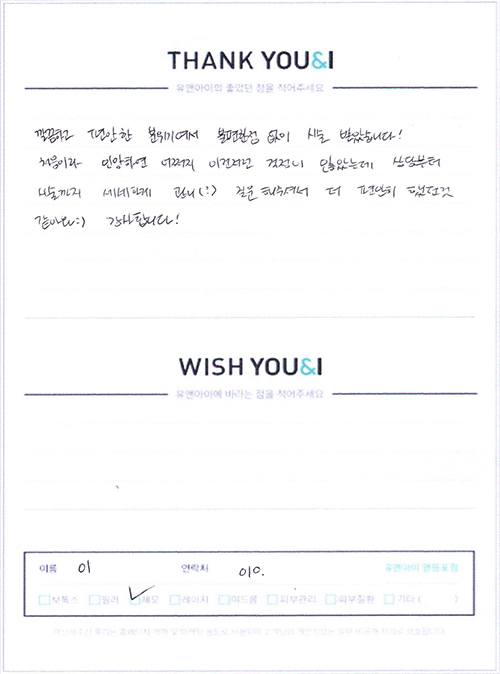 THANK YOU&I
유앤아이의 좋았던 점을 적어주세요
깔끔하고 편안한 분위기에서 불편한점 없이 시술 받았습니다!
처음이라 민망하면 어쩌지 이런저런 걱정이 많았는데 상담부터
시술까지 세세하게 관리(?) 질문 해주셔서 더 편안히 했던것
같아요:) 감사합니다!
WISH YOU&I
유앤아이에 바라는 점을 적어주세요
이름 이 연락처 010. 유앤아이 영등포점
보톡스 필러 제모 레이저 여드름 피부관리 피부질환 기타 ( )